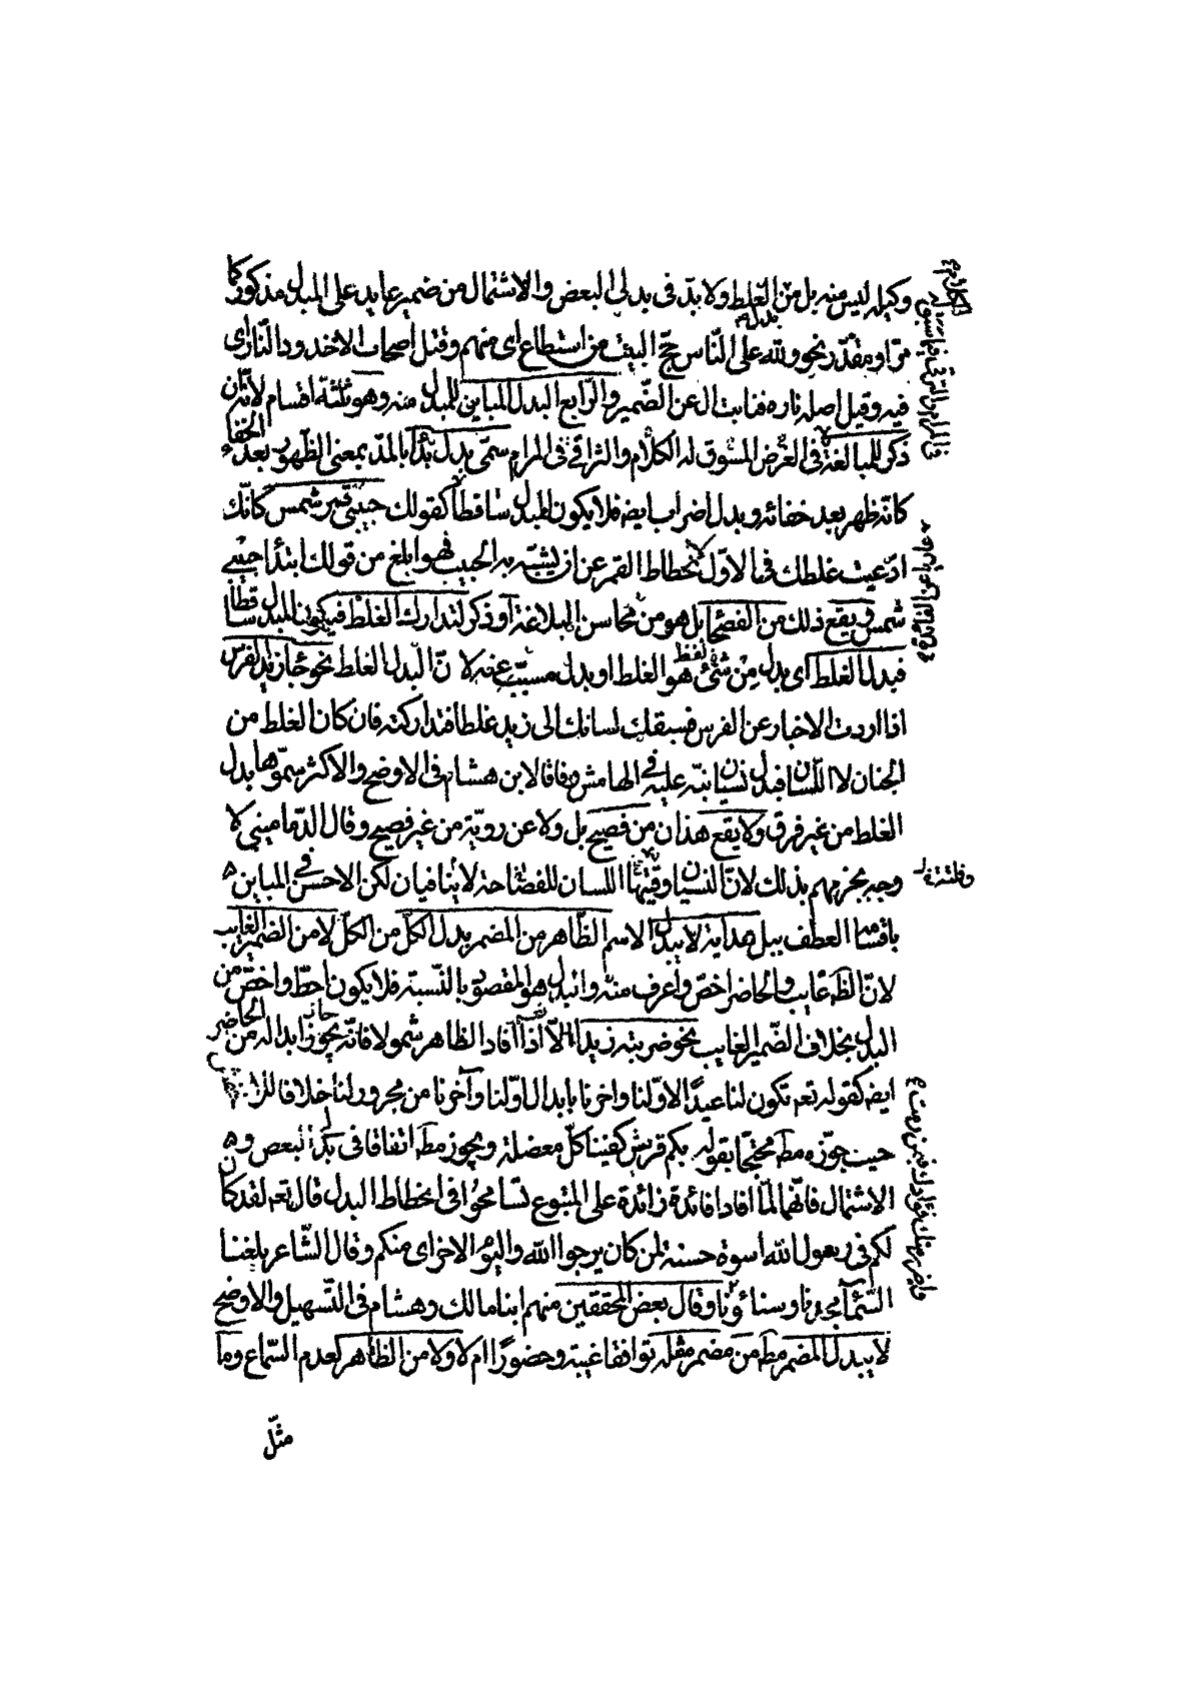 وكيله ليس منه بل من الغلط ولا بدّ في بدلي البعض والاشتمال من ضمير عايد على المبدل مذكور كما
مرّ او مقدّر نحو ولله على النّاس حجّ البيت من استطاع اى منهم وقتل اصحاب الاخدود النّار اى
فيه وقيل اصله ناره فنابت ال عن الضّمير والرّابع البدل المباين للمبدل منه وهو ثلثة اقسام لانّه ان
ذكر للمبالغة في الغرض المسوق له الكلام والترقي في المرام سمّى بدل بدأ بالمدّ بمعنى الظّهور بعد الخفاء
كانّه ظهر بعد خفائه وبدل اضراب ايضا فلا يكون المبدل ساقطا كقولك حبيبى قمر شمس كانّك
ادّعيت غلطك في الاوّل لانحطاط القمر عن ان يشبّه به الحبيب فهو ابلغ من قولك ابتدأ حبيبى
شمس ويقع ذلك من الفصحا بل هو من محاسن البلاغة او ذكر لتدارك الغلط فيكون المبدل ساقطا
فبدل الغلط اى بدل من شئ لفظ هو الغلط او بدل مسبّب عنه لا انّ البدل الغلط نحو جاء زيد الفرس
اذا اردت الاخبار عن الفرس فسبقك لسانك الى زيد غلطا فتداركته فان كان الغلط من
الجنان لا اللّسان فبدل نسيان نبّه عليه في الهامش وفاقا لابن هشام في الاوضح والاكثر سمّوها بدل
الغلط من غير فرق ولا يقع هذان من فصيح بل ولا عن رويّة من غير فصيح وقال الدّمامينى لا
وجه لجزمهم بذلك لانّ النسيان وفلتة اللسان للفصاحة لا ينافيان لكن الاحسن في المباين
باقسامه العطف ببل هداية لا يبدل الاسم الظّاهر من المضمر بدل الكل من الكلّ الا من الضمير الغايب
لانّ الظّ غايب والحاضر اخصّ واعرف منه والبدل هو المقصود بالنّسبة فلا يكون احطّ واخصّ من
البدل بخلاف الضّمير الغايب نحو ضربته زيدا الّا اذا افاد الظاهر شمولا فانّه يجوز ابداله من الحاضر
ايضه كقوله تعه تكون لنا عيدًا لاوّلنا واخرنا بابدال اوّلنا وآخرنا من مجرور لنا خلافا
حيث جوّزه مطه محتجّا بقوله بكم قريش كفينا كلّ معضلة ويجوز مطه اتفاقا في بدل البعض و
الاشتمال فانّهما لمّا افادا فائدة زائدة على المتبوع تسامحوا في انحطاط البدل قال تعه لقد كان
لكم في رسول الله اسوة حسنة لمن كان يرجوا الله واليوم الاخر اى منكم وقال الشّاعر بلغنا
السّمآ مجدنا وسناؤنا وقال بعض المحققين منهم ابنا مالك وهشام في التّسهيل والاوضح
لا يبدل المضمر مطه من مضمر مثله توافقا غيبة وحضورًا ام لا ولا من الظاهر لعدم السّماع وما
مثّل